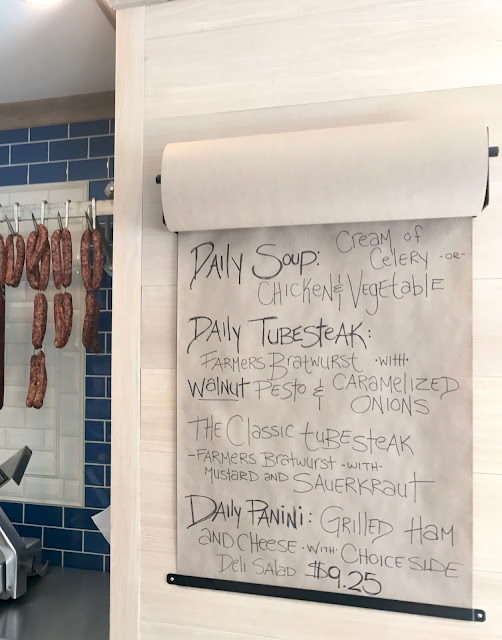 DAILY SOUP: CREAM OF
CELERY -OR-
CHICKEN & VEGETABLE
DAILY TUBESTEAK:
FARMERS BRATWURST -WITH-
WALNUT PESTO & CARAMELIZED
ONIONS
THE CLASSIC TUBESTEAK
-FARMERS BRATWURST -WITH-
MUSTARD AND SAUERKRAUT
DAILY PANINI: GRILLED HAM
AND CHEESE -WITH- CHOICE SIDE
DELI SALAD $9.25